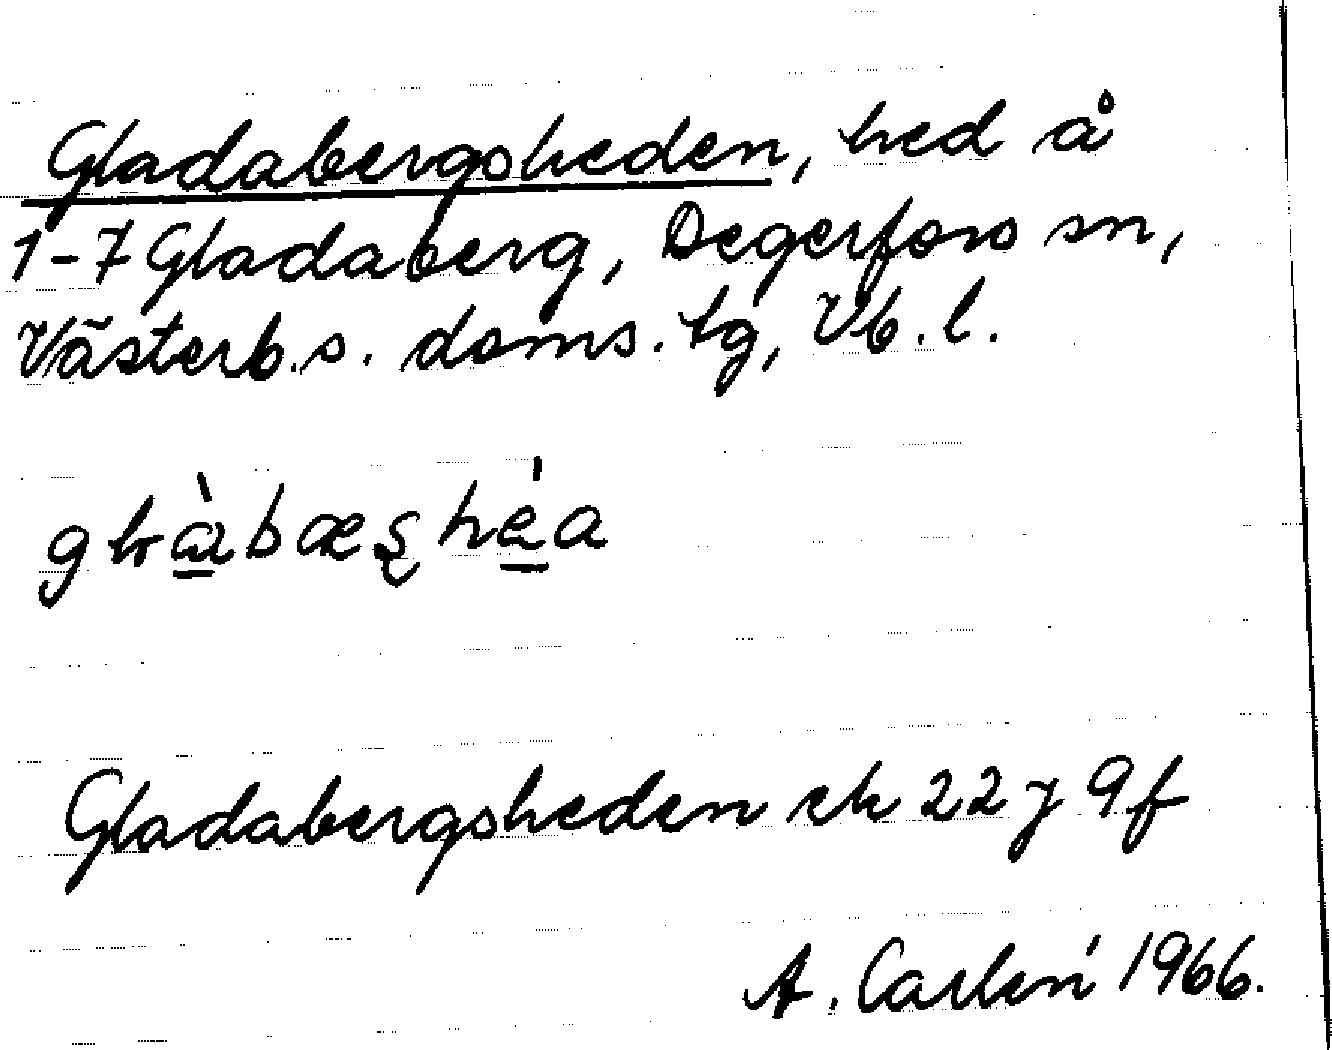 Gladabergsheden, hed å
1-7 Gladaberg, Degerfors sn,
Västerb.s. doms. tg, Vb. l.
Gladabergsheden ek 22 J 9f
A. Carlén 1966.